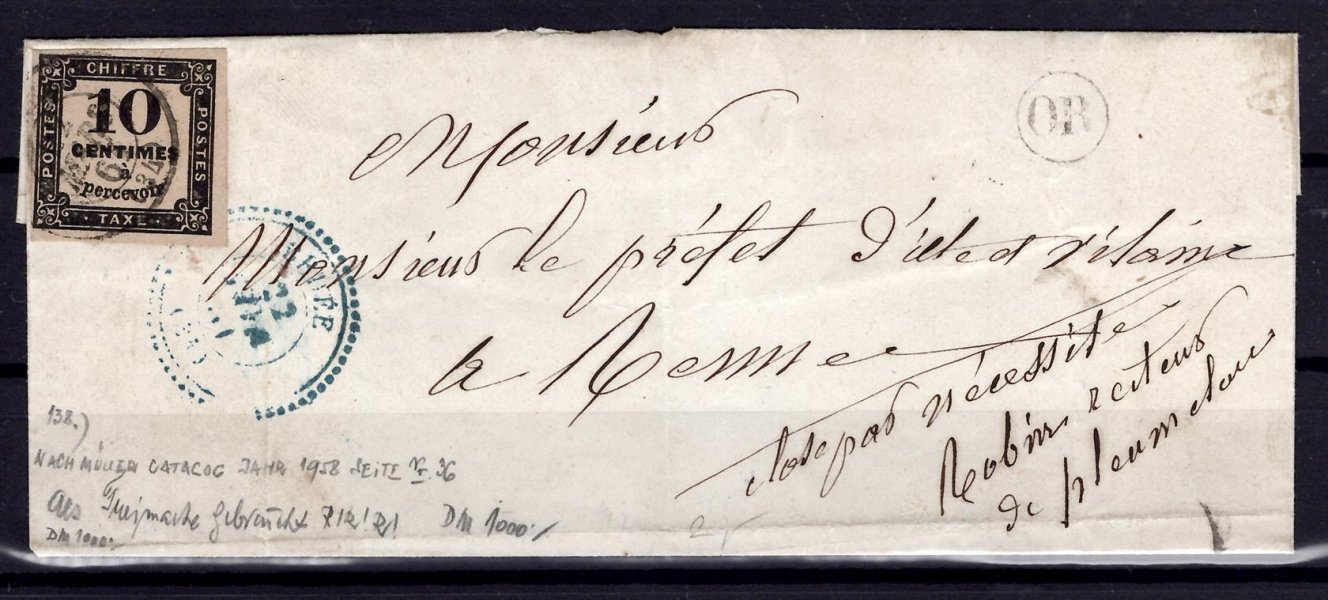 CHIFFRE
POSTES
10
CENTIMES
à
percevoir
POSTES
TAXE
OR
Monsieur
Monsieur le préfet d'ille et vilaine
a Rennes
close par nécessité
Robin recteur
de pleumeleuc
22
138.)
NACH MÜLLER CATALOG JAHR 1958 SEITE Nr. 36
Als Freimarke gebraucht R!R!R! DM 1000.-
DM 1000.-
2,-